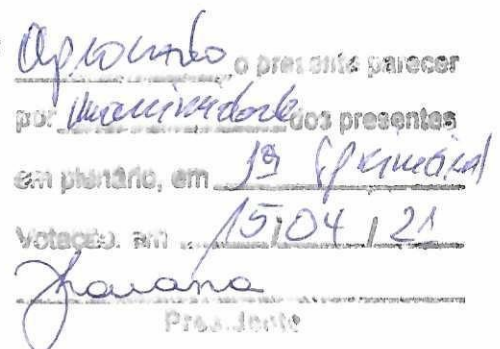 Aprovado o presente parecer
por unanimidade dos presentes
em plenário, em 1ª (primeira)
Votação. em 15/04/21
Presidente